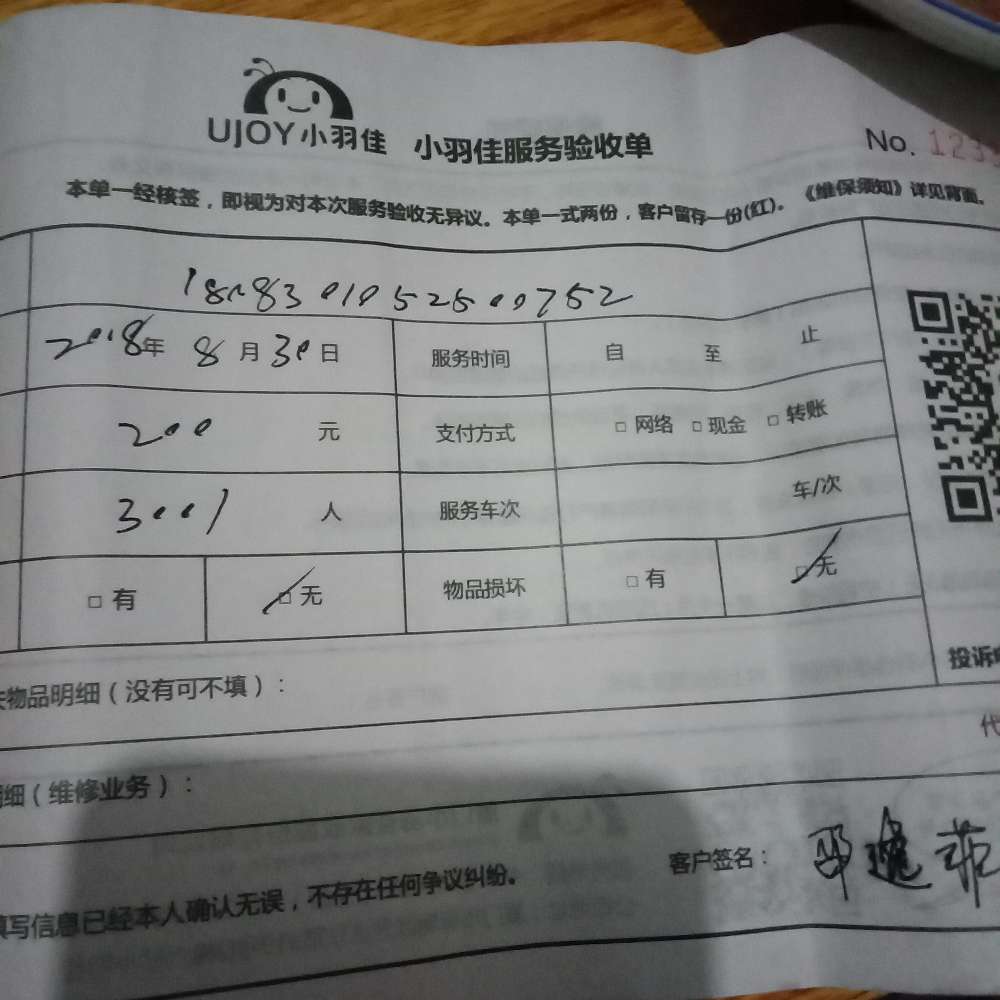 UJOY小羽佳 小羽佳服务验收单
No. 123
本单一经核签，即视为对本次服务验收无异议。本单一式两份，客户留存一份(红)。《维保须知》详见背面。
2018年 8月30日 服务时间 自 至 止
200 元 支付方式 □ 网络 □ 现金 □ 转账
3001 人 服务车次 车/次
□ 有 □ 无 物品损坏 □ 有 □ 无
物品明细（没有可不填）：
投诉
代
细（维修业务）：
客户签名：
填写信息已经本人确认无误，不存在任何争议纠纷。